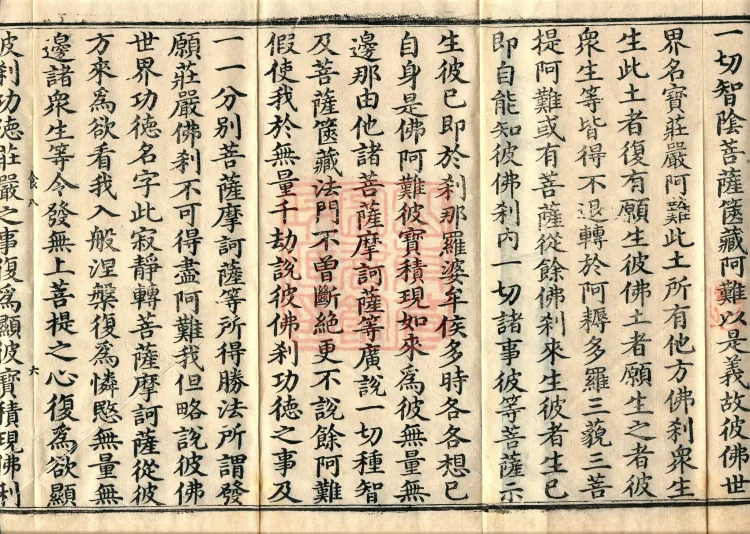 一切智陰菩薩篋藏阿難以是義故彼佛世
界名寶莊嚴阿難此土所有他方佛刹衆生
生此土者復有願生彼佛土者願生之者彼
衆生等皆得不退轉於阿耨多羅三藐三菩
提阿難或有菩薩從餘佛刹來生彼者生已
即自能知彼佛刹内一切諸事彼等菩薩示
生彼已即於刹那羅婆牟侯多時各各想已
自身是佛阿難彼寶積現如來爲彼無量無
邊那由他諸菩薩摩訶薩等廣說一切種智
及菩薩篋藏法門不曽斷絶更不說餘阿難
假使我於無量千劫說彼佛刹功德之事及
一一分别菩薩摩訶薩等所得勝法所謂發
願莊嚴佛刹不可得盡阿難我但略說彼佛
世界功德名字此寂靜轉菩薩摩訶薩從彼
方來爲欲看我入般涅槃復爲憐愍無量無
邊諸衆生等令發無上菩提之心復爲欲顯
食八 六
彼刹功德莊嚴之事復爲顯彼寶積現佛刹